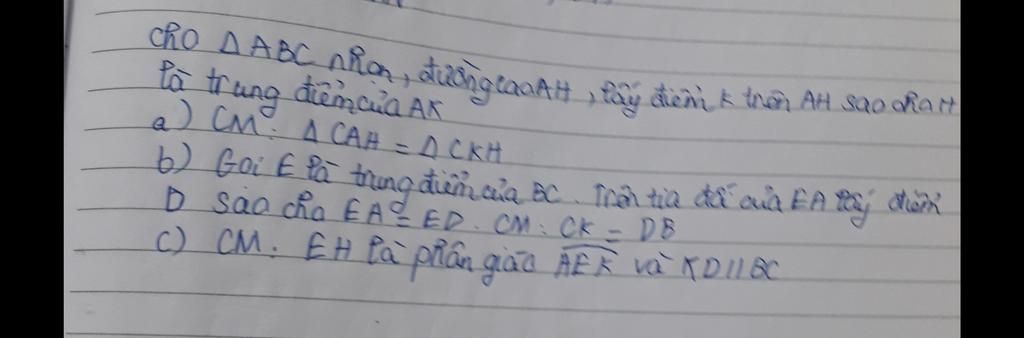 cho Δ ABC nhọn, đường cao AH, lấy điểm K trên AH sao cho H
là trung điểm của AK
a) CM: Δ CAH = Δ CKH
b) Gọi E là trung điểm của BC. Trên tia đối của EA lấy điểm
D sao cho EA = ED. CM: CK = DB
c) CM: EH là phân giác AEK và KD // BC